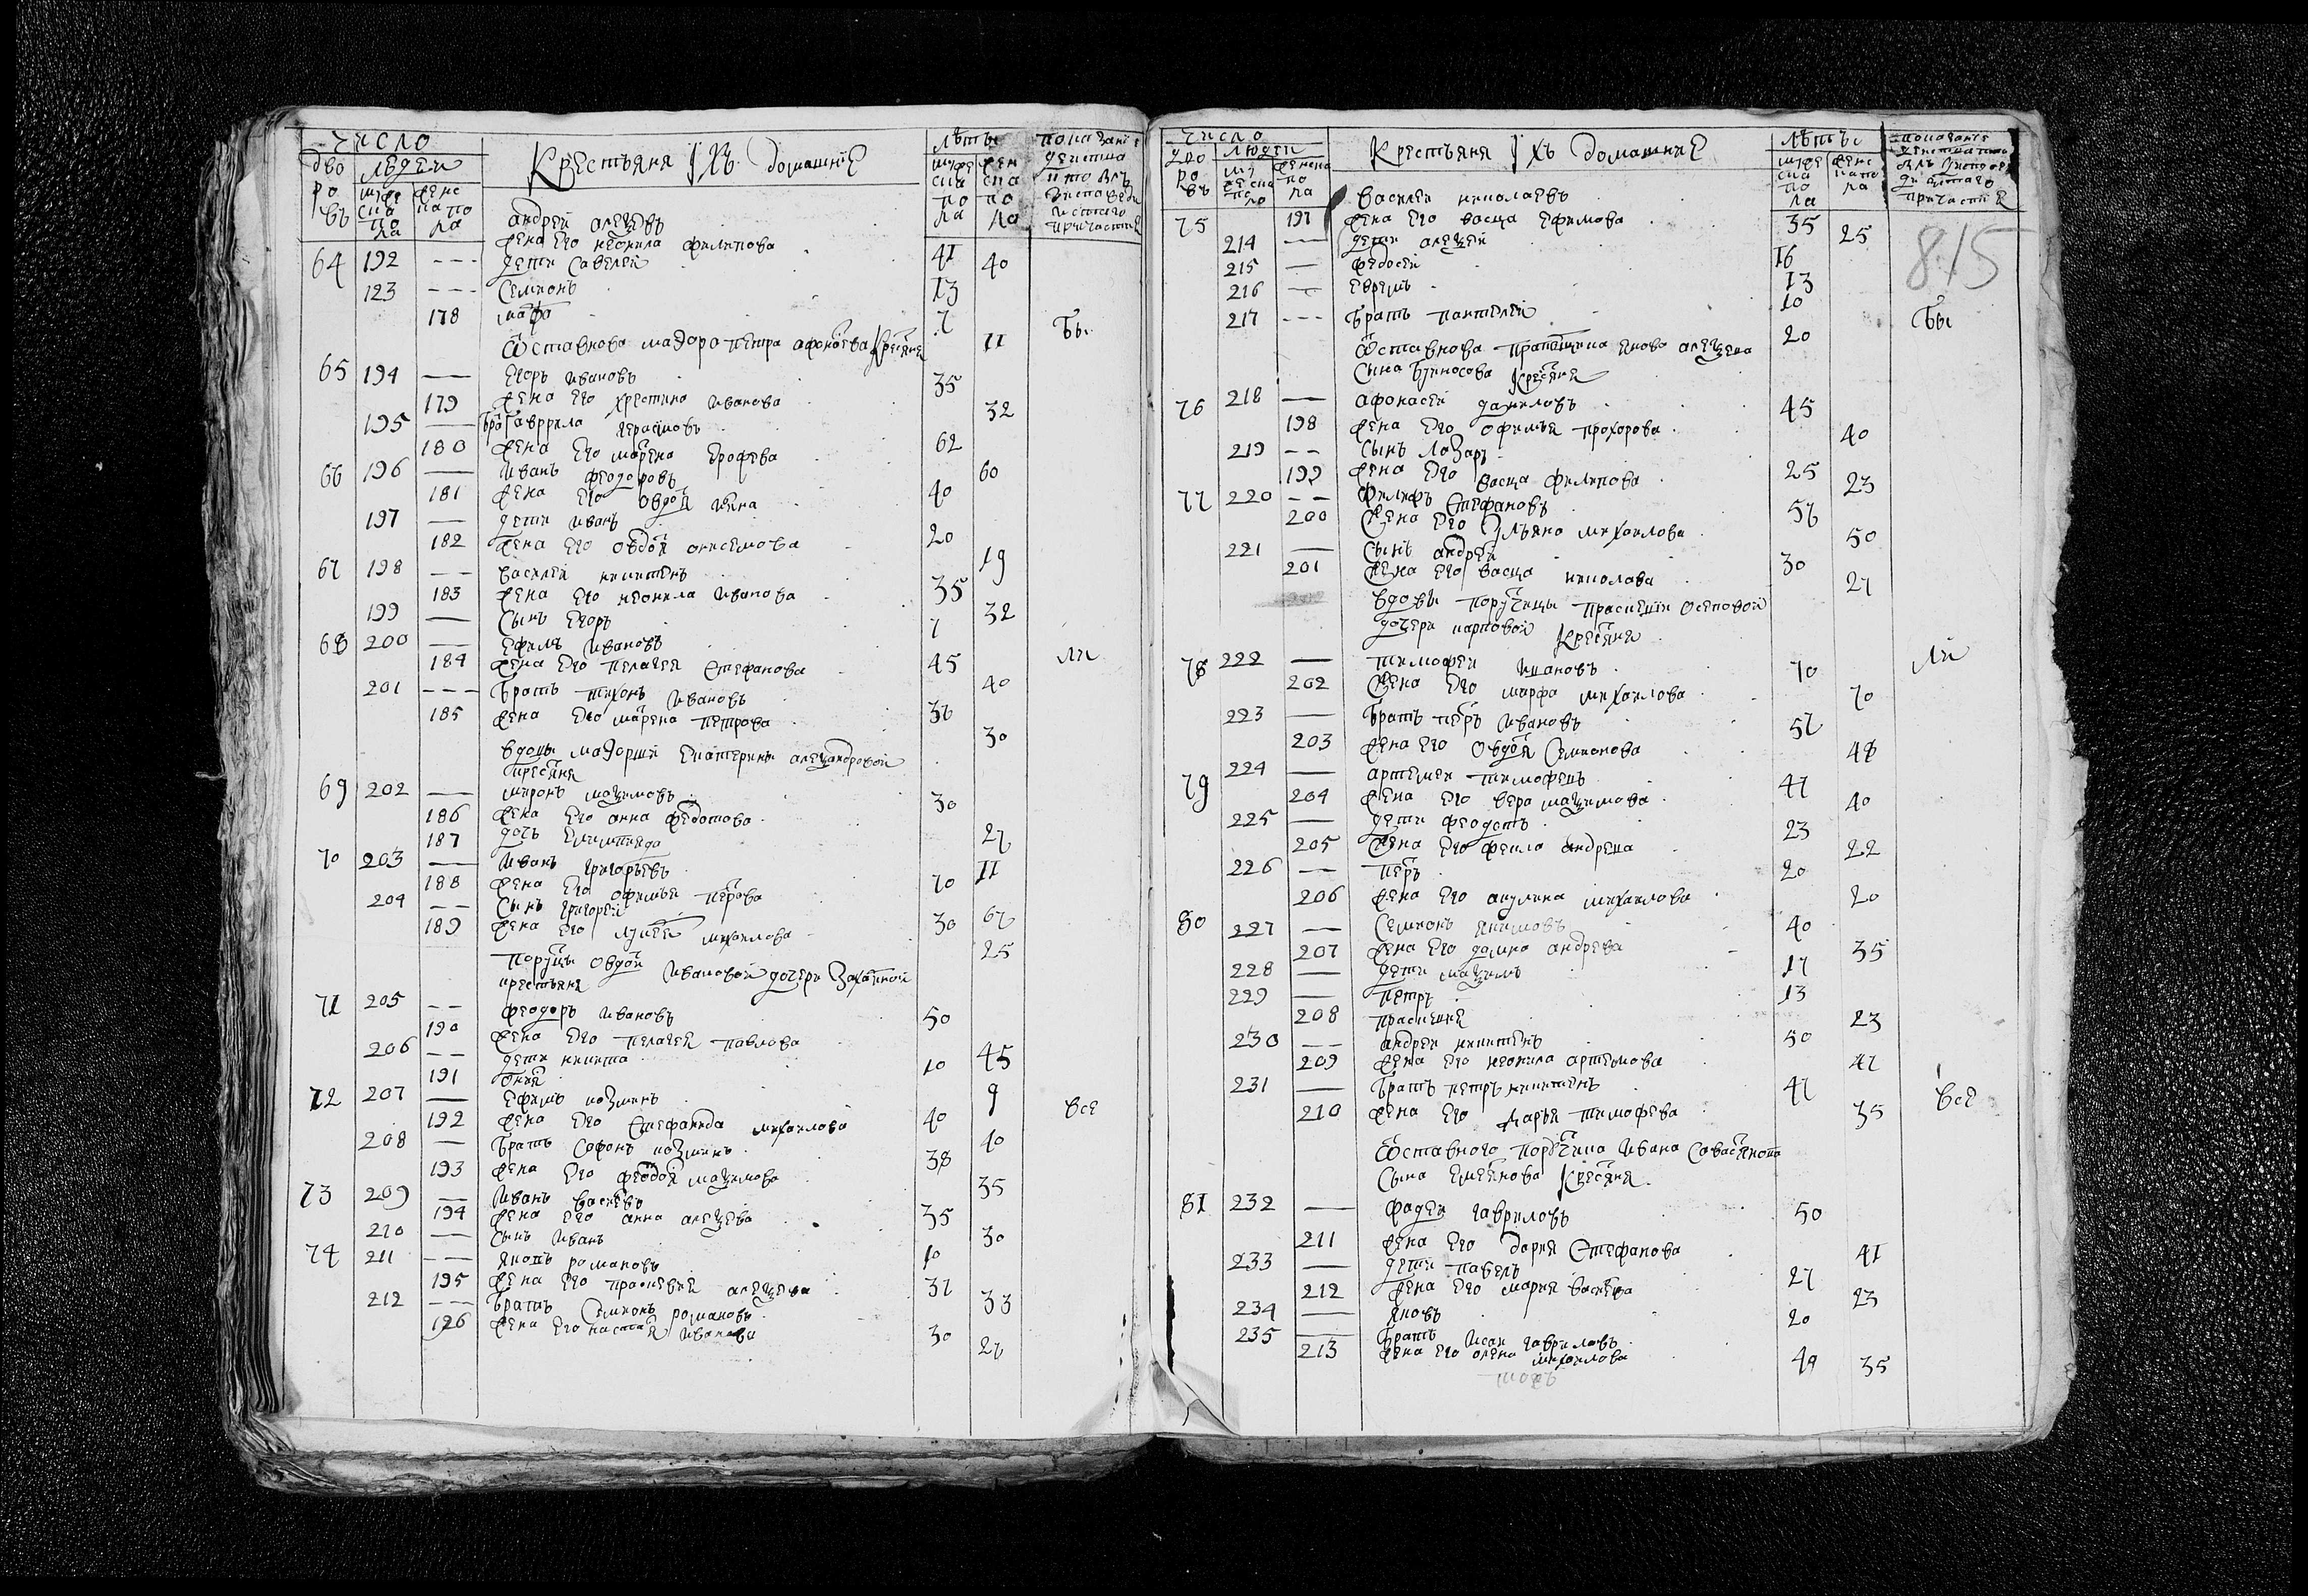 число
дворовъ
людеи
мужеска пола
женска пола
Крестьяня ихъ домашние
лѣты
мужеска пола
женска пола
показание действа кто былъ у исповеди и святаго причастия
андрей алеѯѣвъ
64 192 --- жена его неонила филипова 41 40
123 --- дети савелей 13
Семионъ 7
178 марфа 11
Ѿставнова маэора петра афонасева кресяне
бы
65 194 — егоръ ивановъ 35
179 жена его хрестина иванова 32
195 — бра гаврила герасимовъ 62
180 жена его марена ерофева 60
66 196 — иванъ феодоровъ 40
181 жена его овдоя
197 — дети иванъ 20
182 жена его овдоя онисемова 19
67 198 -- василей никитинъ 35
183 жена его неонила иванова 32
199 — сынъ егоръ 7
68 200 — ефимъ ивановъ 45
184 жена его пелагея стефанова 40
ли
201 --- братъ тихонъ ивановъ 36
185 жена его марена петрова 30
вдовы маэорши екатерины алеѯандровой
кресяня
69 202 — миронъ маѯимовъ 30
186 жена его анна федотова 27
187 дочь 11
70 203 — иванъ григорьевъ 70
188 жена его офимья перова 67
204 -- сынъ григорей 30
189 жена его михаилова 25
поруцы овдоя ивановой дочери
крестьяня
71 205 -- феодоръ ивановъ 50
190 жена его пелагея павлова 45
206 -- дети никита 10
191 9
72 207 — ефимъ козминъ 40
192 жена его стефанида михаилова 40
все
208 — братъ софонъ козминъ 38
193 жена его феодоя маѯимова 35
73 209 — иванъ васиевъ 35
194 жена его анна алеѯева 30
210 — сынъ иванъ 10
74 211 -- яковъ романовъ 37
195 жена его прасковея алеѯева 33
212 --- братъ семионъ романовъ 30
196 жена его настая иванова 27
число
дворовъ
людеи
мужеска поло
женска пола
Крестьяня ихъ домашние
лѣты
мужеска пола
женска пола
показание действа былъ у исповеди и святаго причастия
815
75 василеи николаевъ 35
197 жена его васца ефимова 25
214 -- дети алеѯей 16
215 — федосей 13
216 — евремъ 10
217 --- братъ пантелей 20
бы
Ѿставнова прапощика якова алеѯева
сына бриносова кресяне
76 218 — афонасей даниловъ 45
198 жена его офимья прохорова 40
219 -- сынъ лазарь 25
199 жена его васца филипова 23
77 220 -- филипъ стефановъ 56
200 жена его ульяна михаилова 50
221 — сынъ андрей 30
201 жена его васца николава 27
вдовы поручицы прасковии осеповой
дочери карповой кресяня
78 222 — тимофеи ивановъ 70
202 жена его марфа михаилова 70
ли
223 — братъ перъ ивановъ 57
203 жена его овдоя семионова 48
79 224 — артемеи тимофевъ 47
204 жена его вера маѯимова 40
225 — дети феодотъ 23
205 жена его фекла андреева 22
226 -- перъ 20
206 жена его акулина михаилова 20
80 227 — семионъ якимовъ 40
207 жена его домна андрева 35
228 — дети маѯимъ 17
229 — петръ 13
208 прасковия 23
230 -- андреи никитинъ 50
209 жена его неонила артемова 47
231 — братъ петръ никитинъ 47
210 жена его дарья тимофева 35
все
Ѿставного порутчика ивана савастянова
сына кресяня
81 232 — фадеи гавриловъ 50
211 жена его дария стефанова 41
233 — дети павелъ 27
212 жена его мария васиева 23
234 — яковъ 20
235 — братъ исаи гавриловъ 40
213 жена его олена михаилова 35